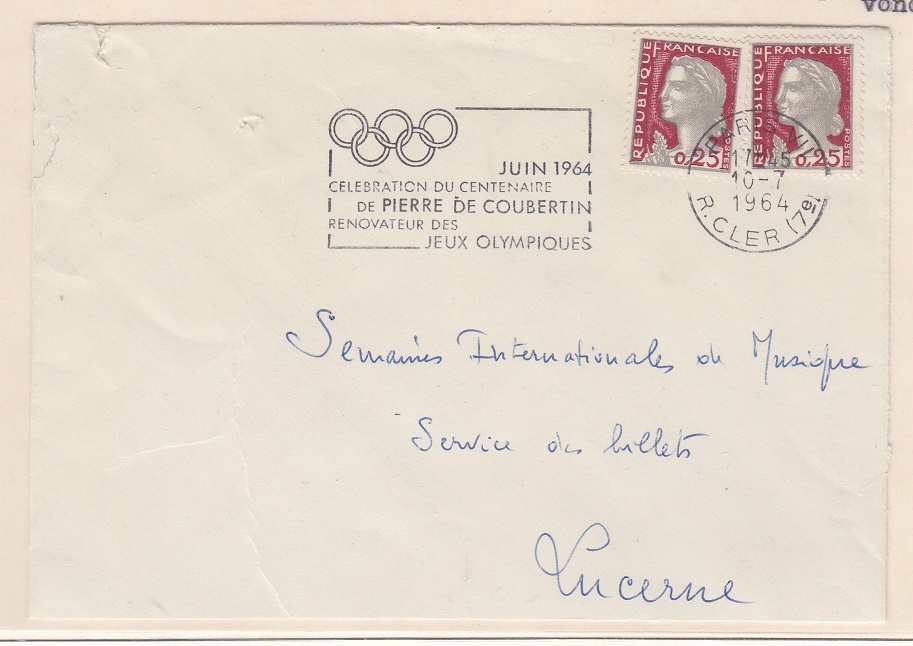 JUIN 1964
CELEBRATION DU CENTENAIRE
DE PIERRE DE COUBERTIN
RENOVATEUR DES
JEUX OLYMPIQUES
REPUBLIQUE FRANCAISE
0,25 POSTES
REPUBLIQUE FRANCAISE
0,25 POSTES
PARIS VII
17 45
10-7
1964
R. CLER (7e)
Semaines Internationales de Musique
Service des billets
Lucerne